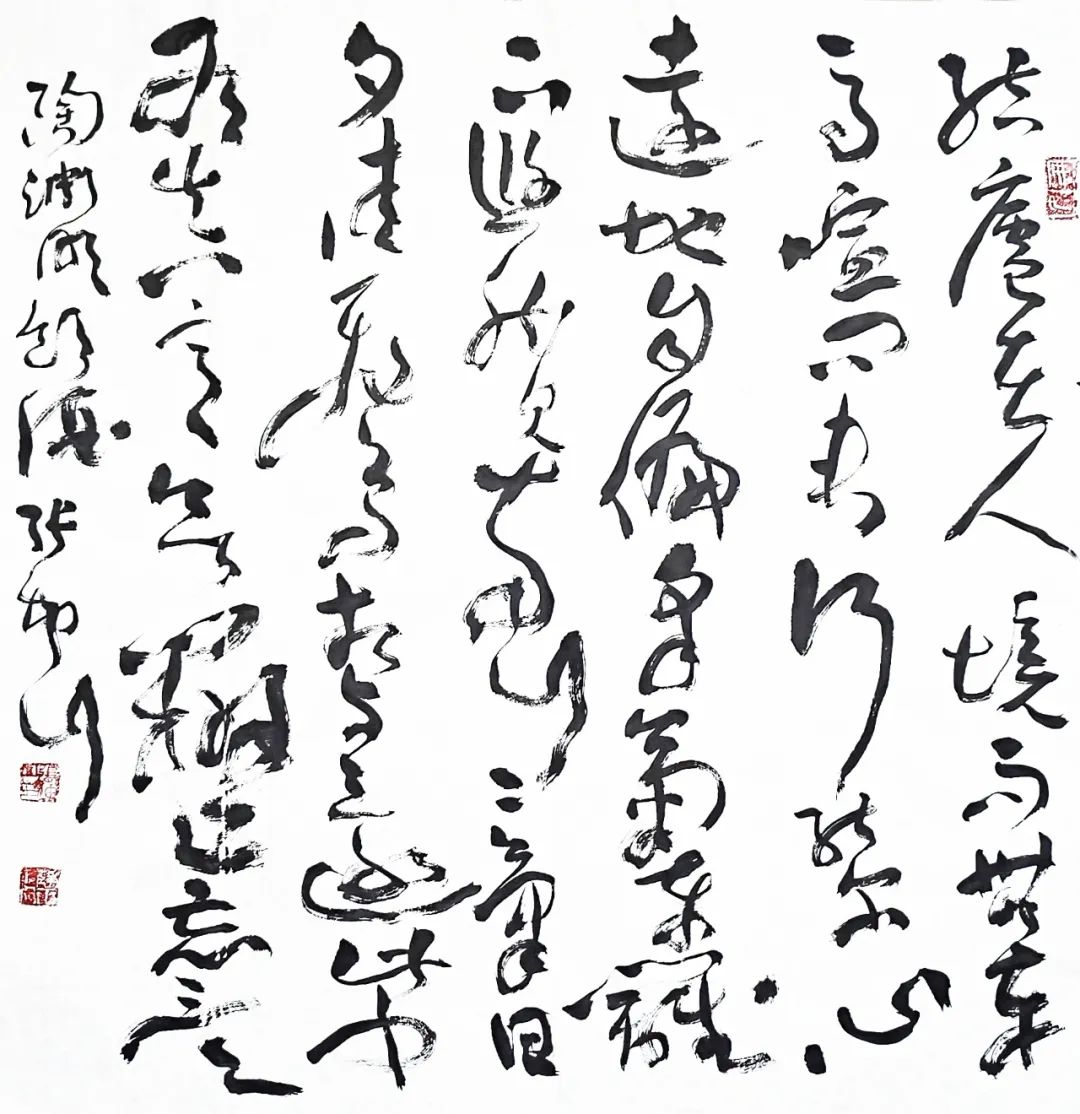 結廬在人境而無車
馬喧問君何能爾心
遠地自偏采菊東籬
下悠然見南山〻氣日
夕佳飛鳥相與還此中
有真意欲辨已忘言
陶淵明飲酒 張